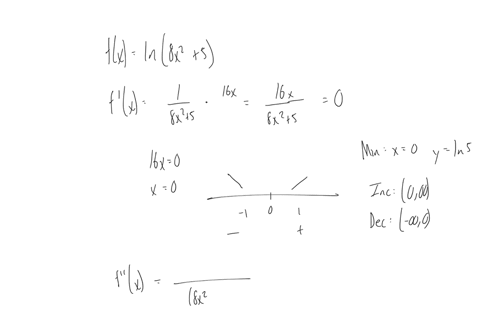 f(x) = ln(8x² + 5)
f'(x) = 1/(8x²+5) · 16x = 16x/(8x²+5) = 0
16x = 0
x = 0
-1 0 1
− +
Min: x = 0 y = ln 5
Inc: (0, ∞)
Dec: (-∞, 0)
f''(x) = /(8x²